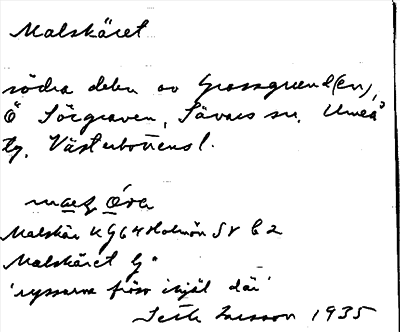 Malskäret
södra delen av Grossgrund(en),
Ö Sörgraven, Sävars sn. Umeå
tg. Västerbottens l.
Malskär KG 64 Holmön SV C2
Malskäret G
'ryssarna frös ihjäl där'
1935